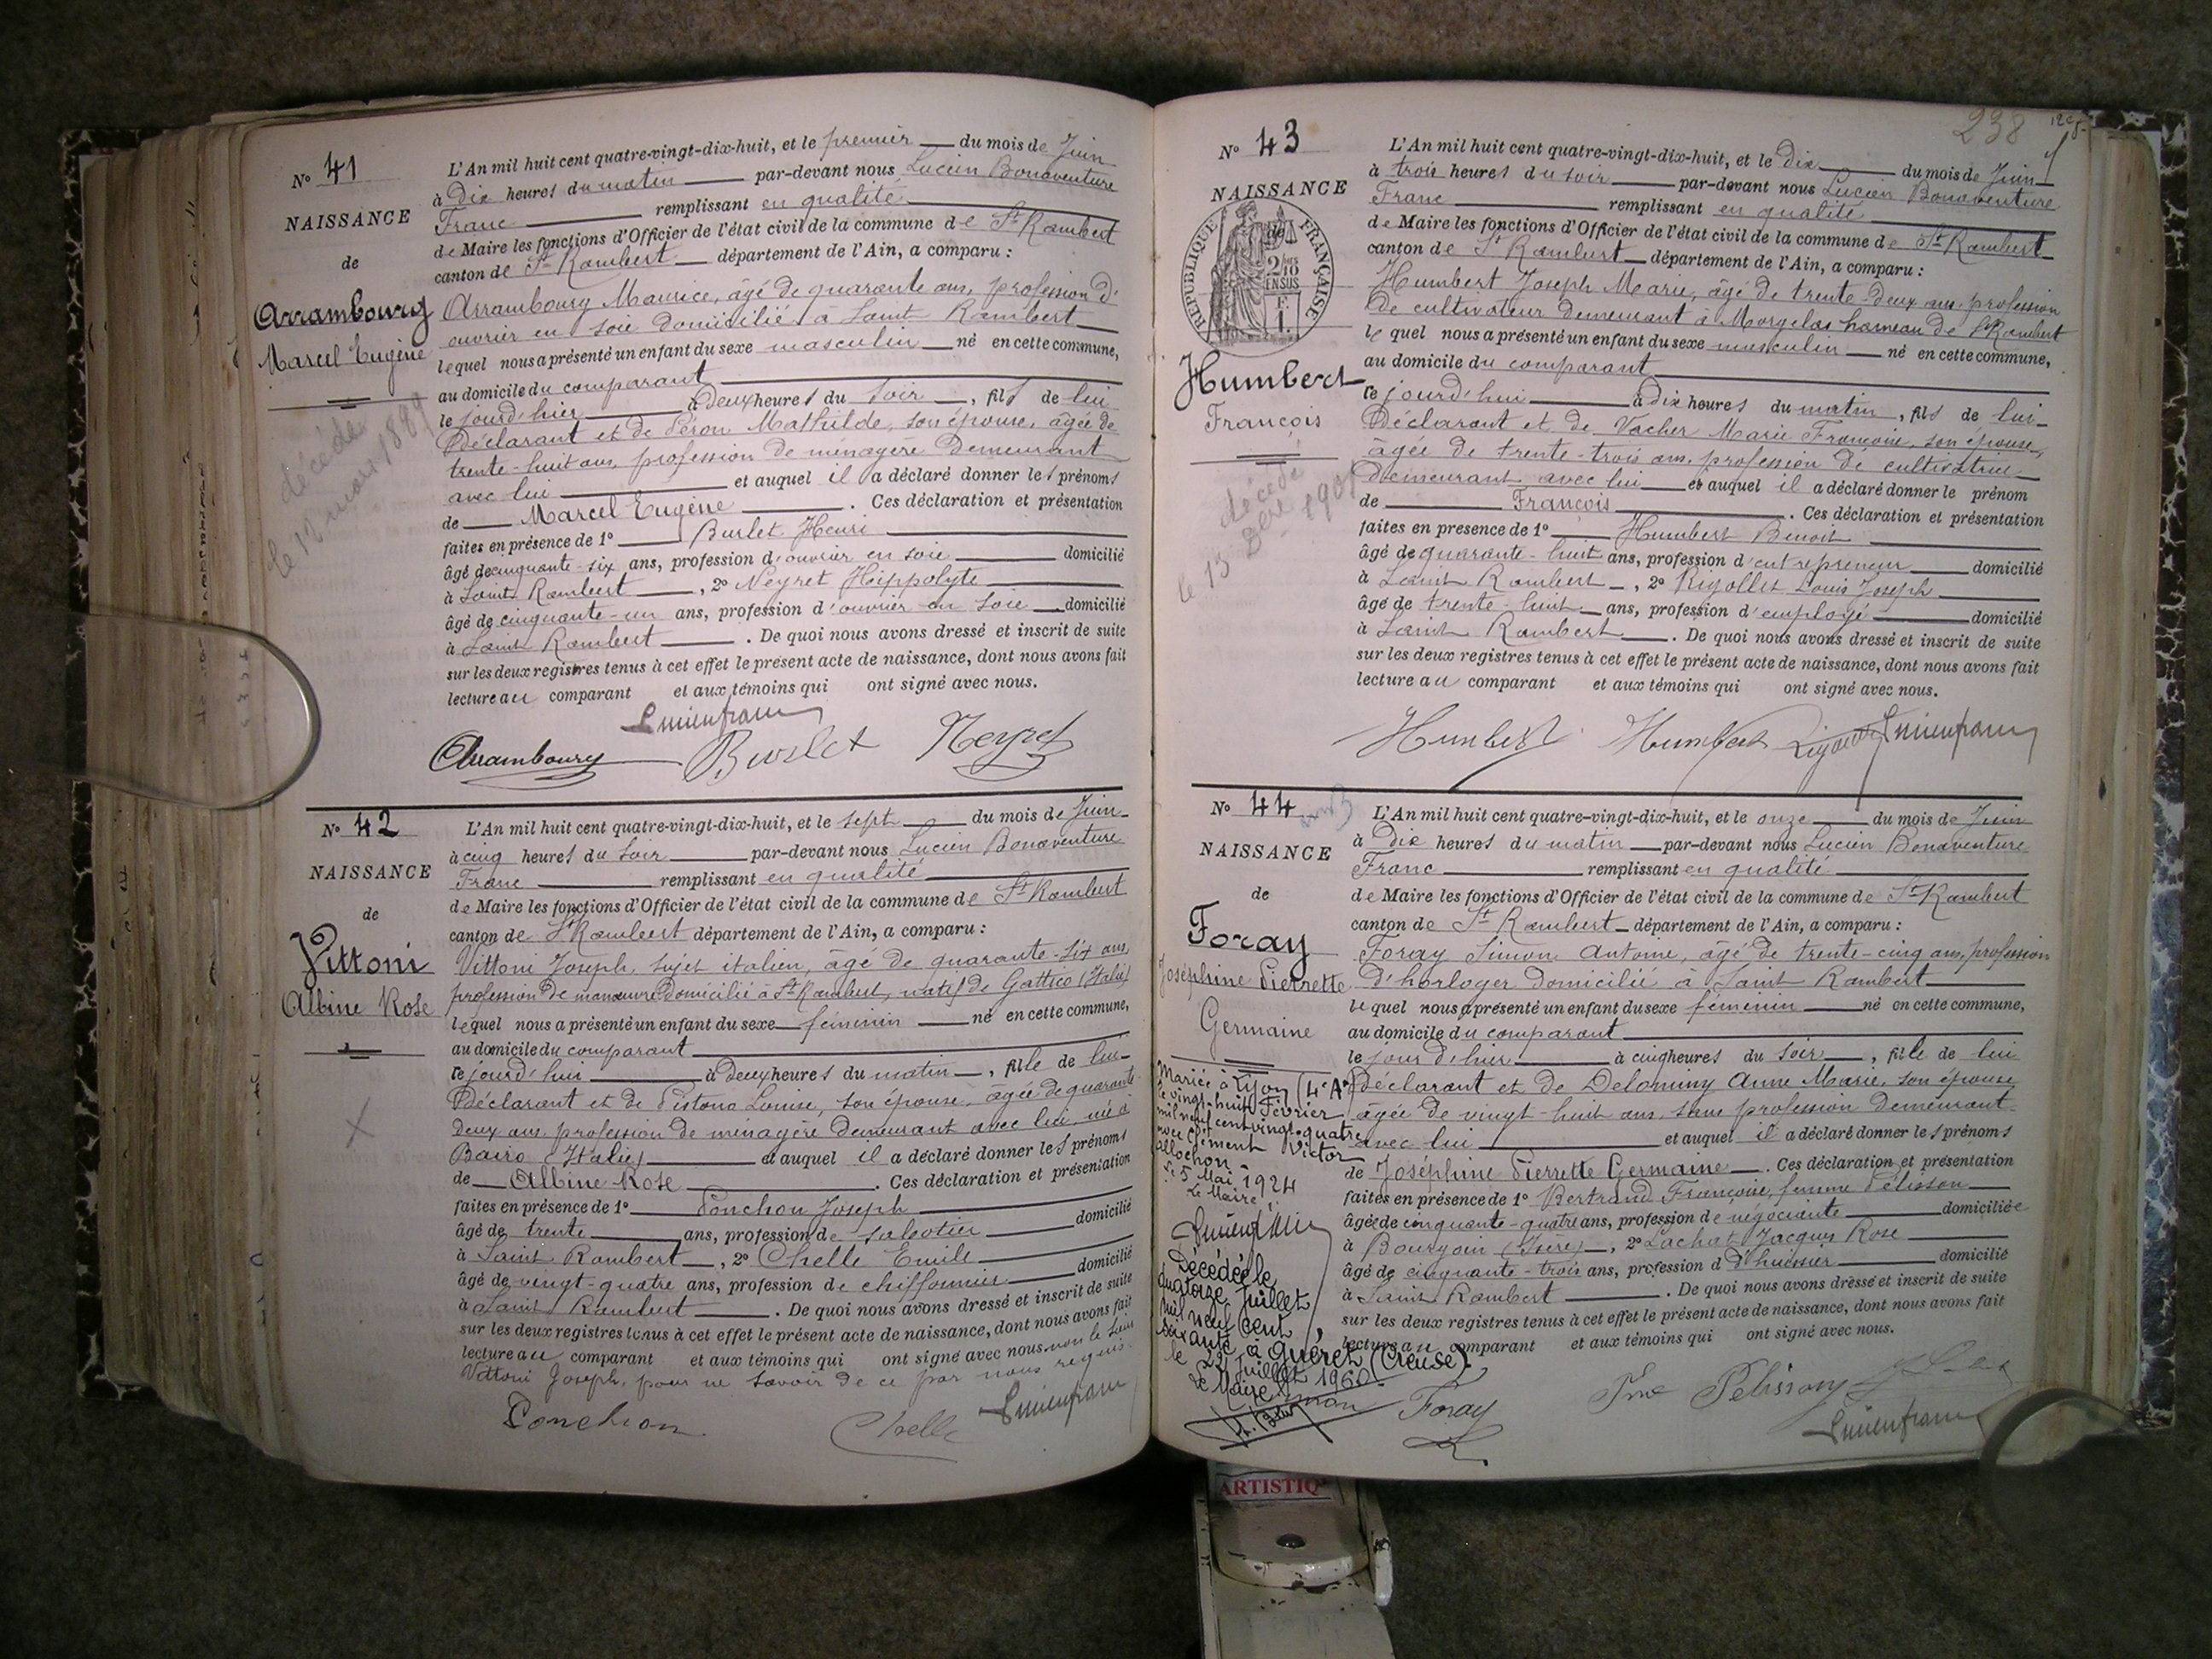 N° 41
NAISSANCE
de
Arrambourg
Marcel Eugène
décédé
le mars 1899
L'An mil huit cent quatre-vingt-dix-huit, et le premier du mois de Juin
à Dix heures du matin par-devant nous Lucien Bonaventure
Franc remplissant en qualité
de Maire les fonctions d'Officier de l'état civil de la commune de St Rambert
canton de St Rambert département de l'Ain, a comparu :
Arrambourg Maurice, âgé de quarante ans, profession d'
ouvrier en soie domicilié à Saint Rambert
lequel nous a présenté un enfant du sexe masculin né en cette commune,
au domicile du comparant
le jourd'hier à deux heures du soir, fils de lui
Déclarant et de Péron Mathilde, son épouse, âgée de
trente-huit ans, profession de ménagère demeurant
avec lui et auquel il a déclaré donner les prénoms
de Marcel Eugène. Ces déclaration et présentation
faites en présence de 1° Burlet Henri
âgé de cinquante-six ans, profession d'ouvrier en soie domicilié
à Saint Rambert, 2° Neyret Hippolyte
âgé de cinquante-un ans, profession d'ouvrier en soie domicilié
à Saint Rambert. De quoi nous avons dressé et inscrit de suite
sur les deux registres tenus à cet effet le présent acte de naissance, dont nous avons fait
lecture au comparant et aux témoins qui ont signé avec nous.
Lucienfranc
Arrambourg Burlet Neyret
N° 42
NAISSANCE
de
Vittoni
Albine Rose
L'An mil huit cent quatre-vingt-dix-huit, et le sept du mois de Juin
à cinq heures du soir par-devant nous Lucien Bonaventure
Franc remplissant en qualité
de Maire les fonctions d'Officier de l'état civil de la commune de St Rambert
canton de St Rambert département de l'Ain, a comparu :
Vittoni Joseph, sujet italien, âgé de quarante-six ans
profession de manœuvre domicilié à St Rambert, natif de Gattico (Italie)
lequel nous a présenté un enfant du sexe féminin né en cette commune,
au domicile du comparant
le jourd'hui à deux heures du matin, fille de lui
Déclarant et de Pistono Louise, son épouse, âgée de quarante
deux ans, profession de ménagère demeurant avec lui, née à
Bairo (Italie) et auquel il a déclaré donner les prénoms
de Albine Rose. Ces déclaration et présentation
faites en présence de 1° Ponchon Joseph
âgé de trente ans, profession de sabotier domicilié
à Saint Rambert, 2° Chelle Emile
âgé de vingt-quatre ans, profession de chiffonnier domicilié
à Saint Rambert. De quoi nous avons dressé et inscrit de suite
sur les deux registres tenus à cet effet le présent acte de naissance, dont nous avons fait
lecture au comparant et aux témoins qui ont signé avec nous non le sieur
Vittoni Joseph, pour ne savoir de ce par nous requis.
Ponchon Chelle Lucienfranc
238
N° 43
NAISSANCE
RÉPUBLIQUE FRANÇAISE
Humbert
François
décédé
le 13 Déc
L'An mil huit cent quatre-vingt-dix-huit, et le Dix du mois de Juin
à trois heures du soir par-devant nous Lucien Bonaventure
Franc remplissant en qualité
de Maire les fonctions d'Officier de l'état civil de la commune de St Rambert
canton de St Rambert département de l'Ain, a comparu :
Humbert Joseph Marie, âgé de trente-deux ans, profession
de cultivateur demeurant à Morgelas hameau de St Rambert
lequel nous a présenté un enfant du sexe masculin né en cette commune,
au domicile du comparant
le jourd'hui à dix heures du matin, fils de lui
Déclarant et de Vacher Marie Françoise, son épouse,
âgée de trente-trois ans, profession de cultivatrice
demeurant avec lui et auquel il a déclaré donner le prénom
de François. Ces déclaration et présentation
faites en presence de 1° Humbert Benoit
âgé de quarante-huit ans, profession d'entrepreneur domicilié
à Saint Rambert, 2° Rigollet Louis Joseph
âgé de trente-huit ans, profession d'employé domicilié
à Saint Rambert. De quoi nous avons dressé et inscrit de suite
sur les deux registres tenus à cet effet le présent acte de naissance, dont nous avons fait
lecture au comparant et aux témoins qui ont signé avec nous.
Humbert Humbert Lucienfranc
N° 44
NAISSANCE
de
Foray
Joséphine Pierrette
Germaine
Mariée à Lyon (4e Art)
le vingt-huit Février
mil neuf cent vingt-quatre
avec Clément Victor
Allochon
le 5 Mai 1924
Le Maire
Décédée le
quatorze juillet
mil neuf cent
soixante à Guéret (Creuse).
le 22 juillet 1960.
Le Maire
L'An mil huit cent quatre-vingt-dix-huit, et le onze du mois de Juin
à Dix heures du matin par-devant nous Lucien Bonaventure
Franc remplissant en qualité
de Maire les fonctions d'Officier de l'état civil de la commune de St Rambert
canton de St Rambert département de l'Ain, a comparu :
Foray Simon Antoine, âgé de trente-cinq ans, profession
d'horloger domicilié à Saint Rambert
lequel nous a présenté un enfant du sexe féminin né en cette commune,
au domicile du comparant
le jour d'hier à cinq heures du soir, fille de lui
déclarant et de Delominy Anne Marie, son épouse
âgée de vingt-huit ans, sans profession demeurant
avec lui et auquel il a déclaré donner les prénoms
de Joséphine Pierrette Germaine. Ces déclaration et présentation
faites en présence de 1° Bertrand Françoise, femme Pélisson
âgée de cinquante-quatre ans, profession de négociante domiciliée
à Bourgoin (Isère), 2° Lachat Jacques Rose
âgé de cinquante-trois ans, profession d'huissier domicilié
à Saint Rambert. De quoi nous avons dressé et inscrit de suite
sur les deux registres tenus à cet effet le présent acte de naissance, dont nous avons fait
lecture au comparant et aux témoins qui ont signé avec nous.
Foray Fme Pelisson
Lucienfranc
ARTISTIQ